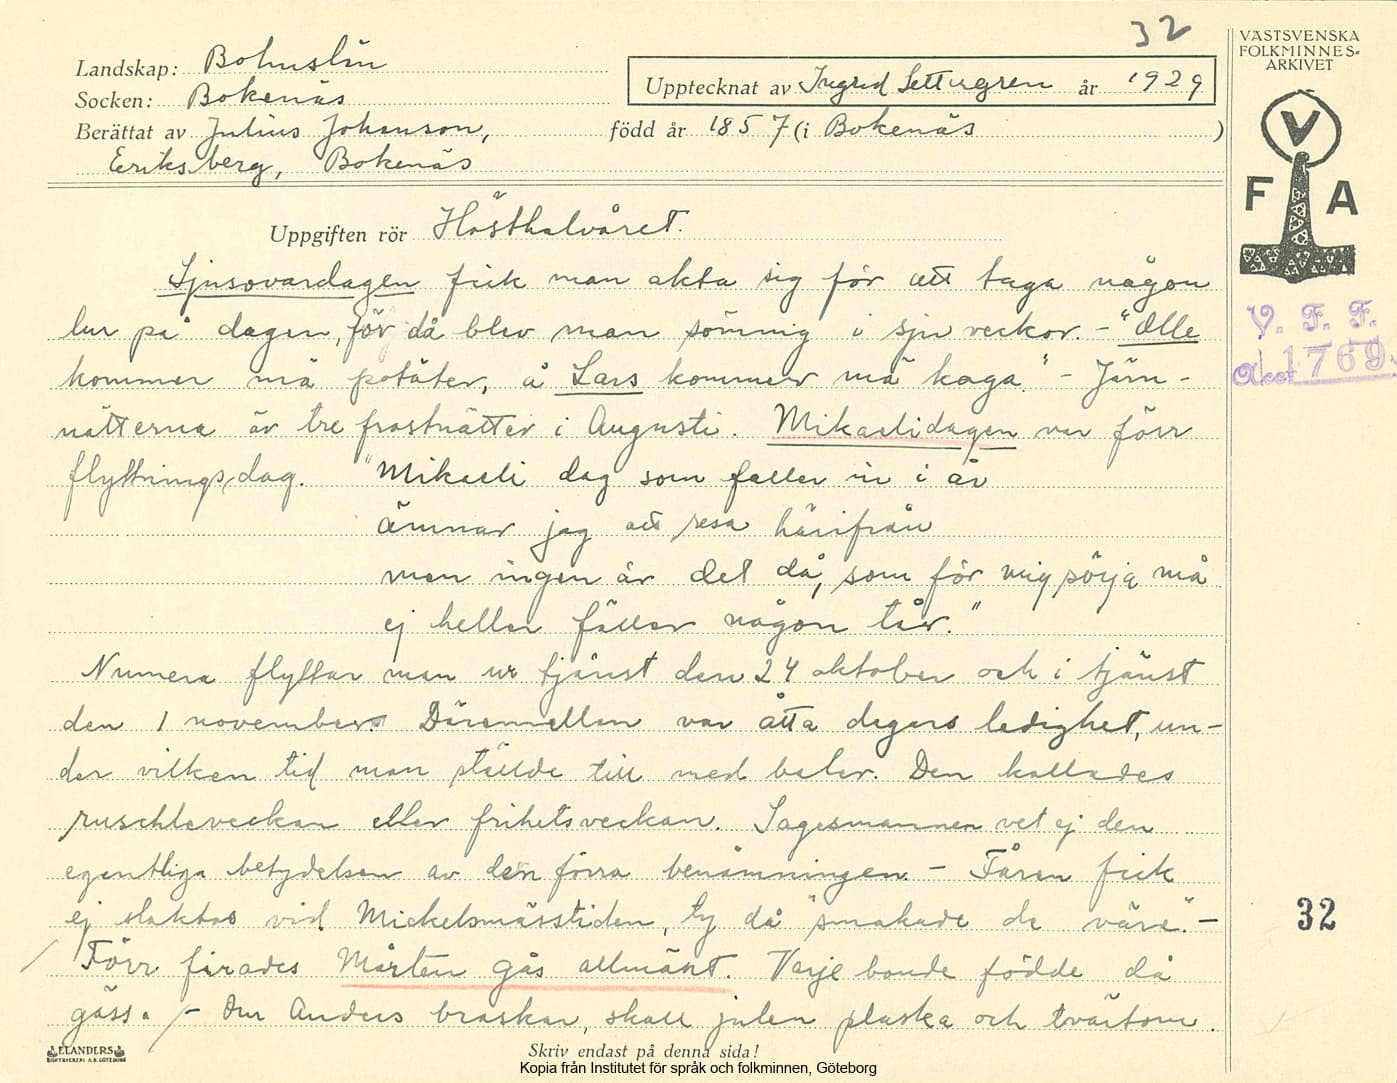 32
VÄSTSVENSKA
FOLKMINNES-
ARKIVET
Landskap: Bohuslän
Socken: Bokenäs
Upptecknat av Ingrid Settergren år 1929
Berättat av Julius Johanson, född år 1857 (i Bokenäs )
Eriksberg, Bokenäs
V
F A
Uppgiften rör Hösthalvåret.
Sjusovardagen fick man akta sig för att taga någon
lur på dagen, för då blev man sömnig i sju veckor. - "Olle
kommer mä potäter, å Lars kommer mä kaga." - Järn-
nätterna är tre frostnätter i Augusti. Mikaelidagen var förr
flyttningsdag. "Mikaeli dag som faller in i år
ämnar jag att resa härifrån
men ingen är det då, som för mig sörja må
ej heller fäller någon tår."
Numera flyttar man ur tjänst den 24 oktober och i tjänst
den 1 november. Däremellan var åtta dagars ledighet, un-
der vilken tid man ställde till med baler. Den kallades
ruschleveckan eller frihetsveckan. Sagesmannen vet ej den
egentliga betydelsen av den förra benämningen. - Fåren fick
ej slaktas vid Mickelsmässtiden, ty då "smakade de väre". -
Förr firades Mårten gås allmänt. Varje bonde födde då
gäss. - Om Anders braskar, skall julen plaska och tvärtom.
V. F. F.
Acc. 1769
32
ELANDERS
BOKTRYCKERI A.B. GÖTEBORG
Skriv endast på denna sida!
Kopia från Institutet för språk och folkminnen, Göteborg